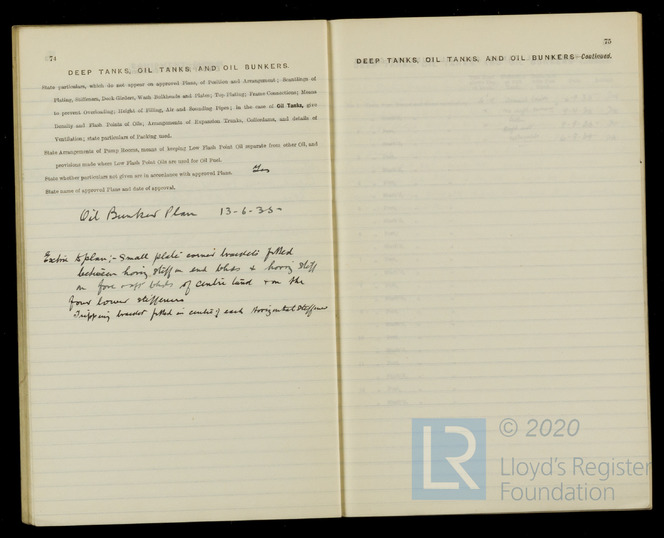 74
DEEP TANKS, OIL TANKS, AND OIL BUNKERS.
State particulars, which do not appear on approved Plans, of Position and Arrangement; Scantlings of
Plating, Stiffeners, Deck Girders, Wash Bulkheads and Plates; Top Plating; Frame Connections; Means
to prevent Overloading; Height of Filling, Air and Sounding Pipes; in the case of Oil Tanks, give
Density and Flash Points of Oils; Arrangements of Expansion Trunks, Cofferdams, and details of
Ventilation; state particulars of Packing used.
State Arrangements of Pump Rooms, means of keeping Low Flash Point Oil separate from other Oil, and
provisions made where Low Flash Point Oils are used for Oil Fuel.
State whether particulars not given are in accordance with approved Plans. Yes
State name of approved Plans and date of approval.
Oil Bunker Plan 13-6-35
Extra to plan:- Small plate corner brackets fitted
between horiz. stiff on end blkds & horiz stiff
on fore & aft blkds of centre tank & on the
four lower stiffeners
Tripping bracket fitted in centre of each Horizontal Stiffener
75
DEEP TANKS, OIL TANKS, AND OIL BUNKERS—Continued.
LR
© 2020
Lloyd's Register
Foundation